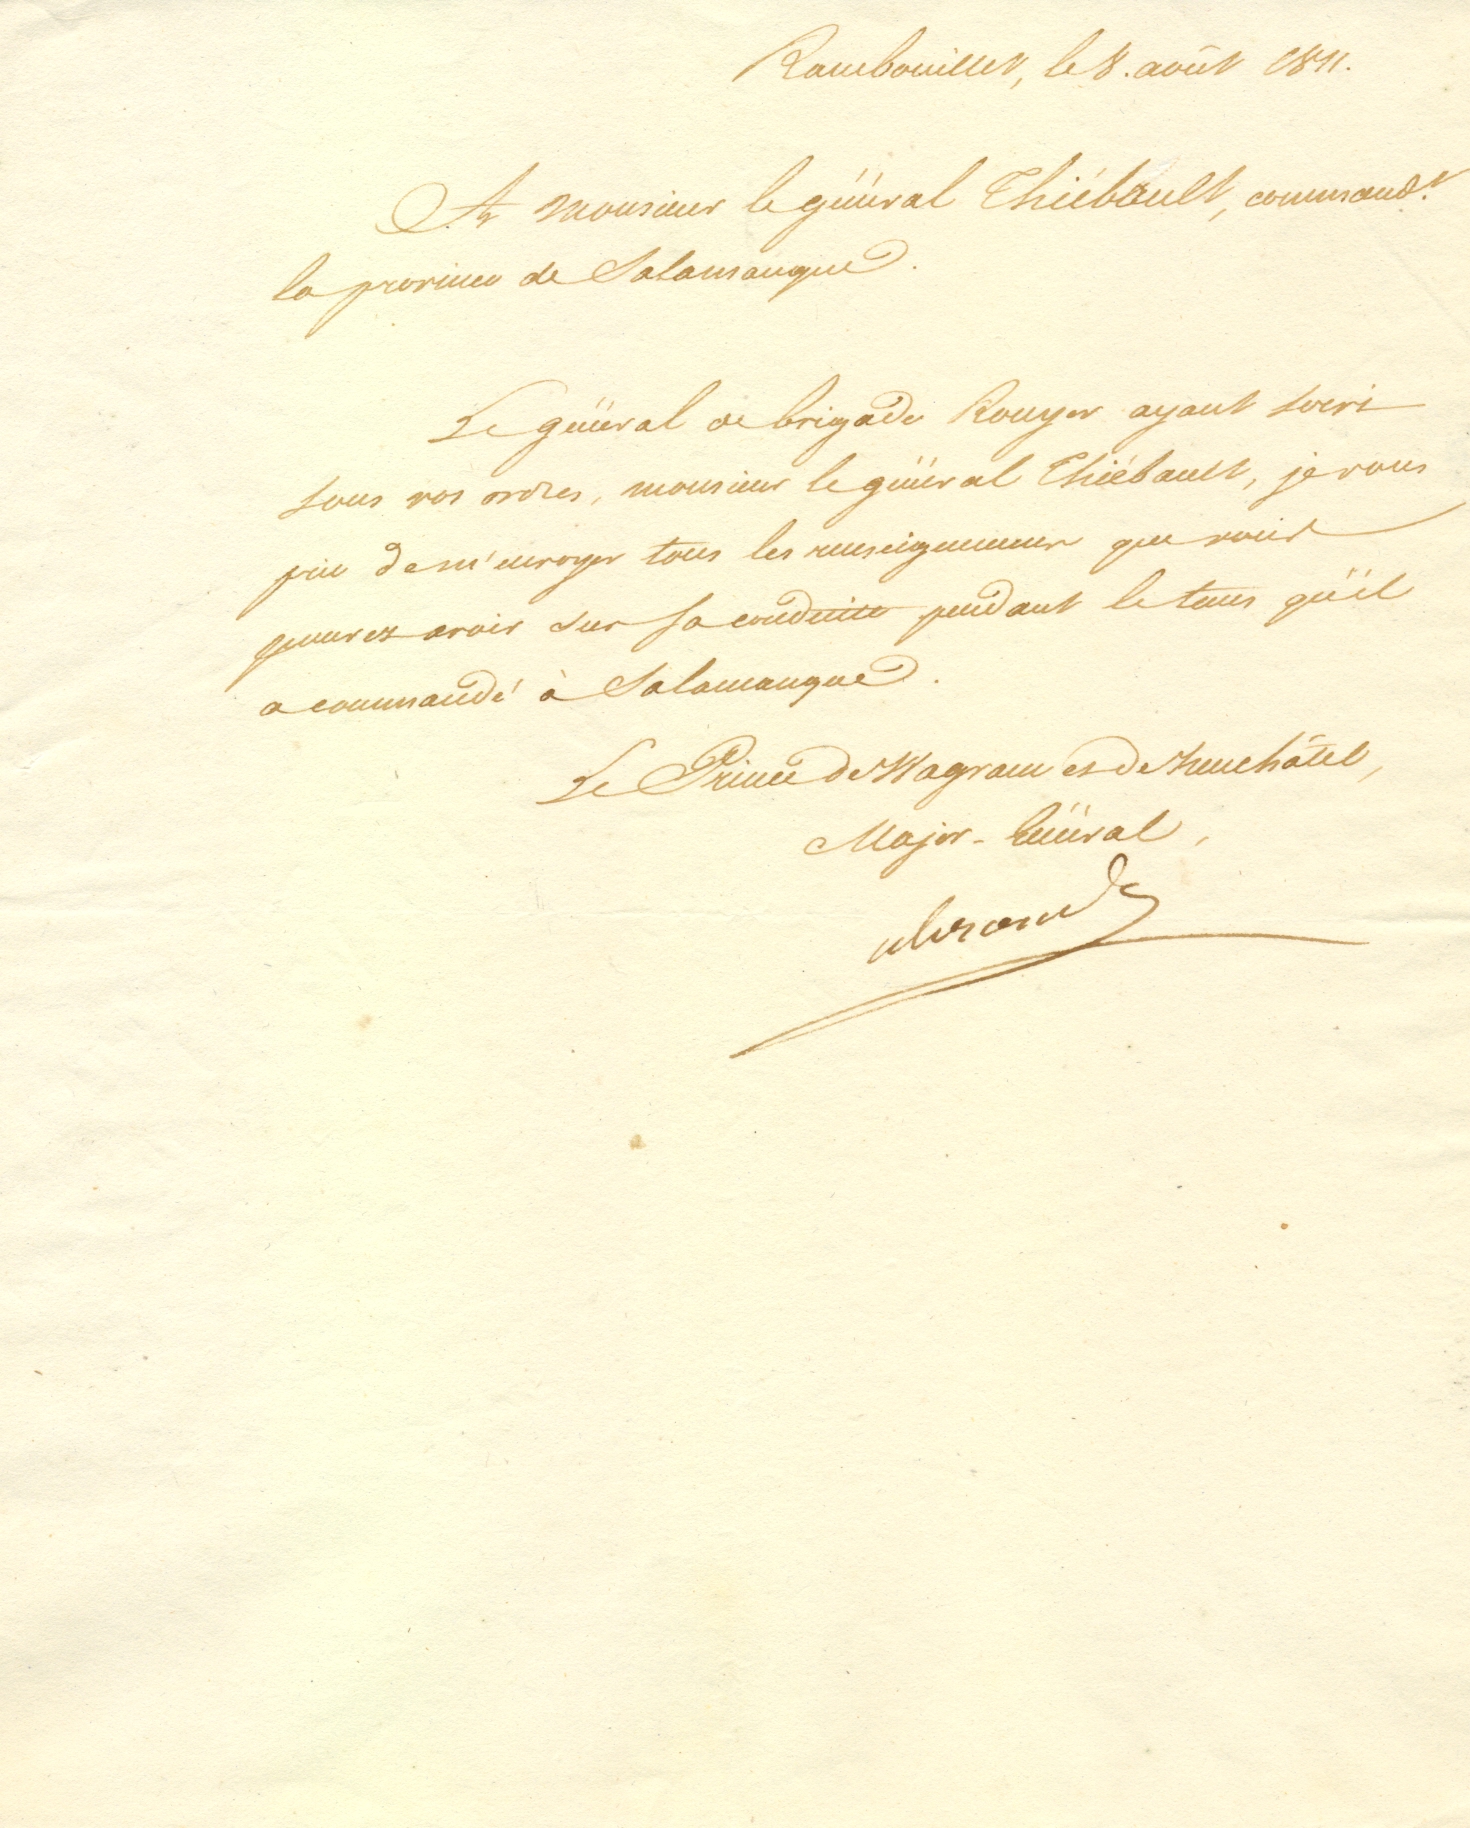 Rambouillet, le 8. août 1811.
A Monsieur le général Thiébault, command.t
la province de Salamanque.
Le général de brigade Rouyer ayant servi
sous vos ordres, monsieur le général Thiébault, je vous
prie de m'envoyer tous les renseignemens que vous
pourez avoir sur sa conduite pendant le tems qu'il
a commandé à Salamanque.
Le Prince de Wagram et de Neuchâtel,
Major-Général,
Alexandre